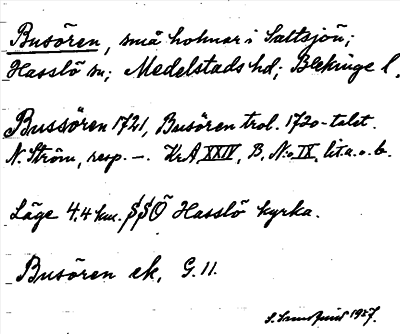 Busören, små holmar i Saltsjön;
Hasslö sn; Medelstads hd; Blekinge l.
Bussören 1721, Busören trol. 1720-talet.
N. Ström, resp. –. KrA XXIV, B, N:o IX, lit. a. o. b.
Läge 4.4 km. SSÖ Hasslö kyrka.
Busören ek, G. 11.
1927.